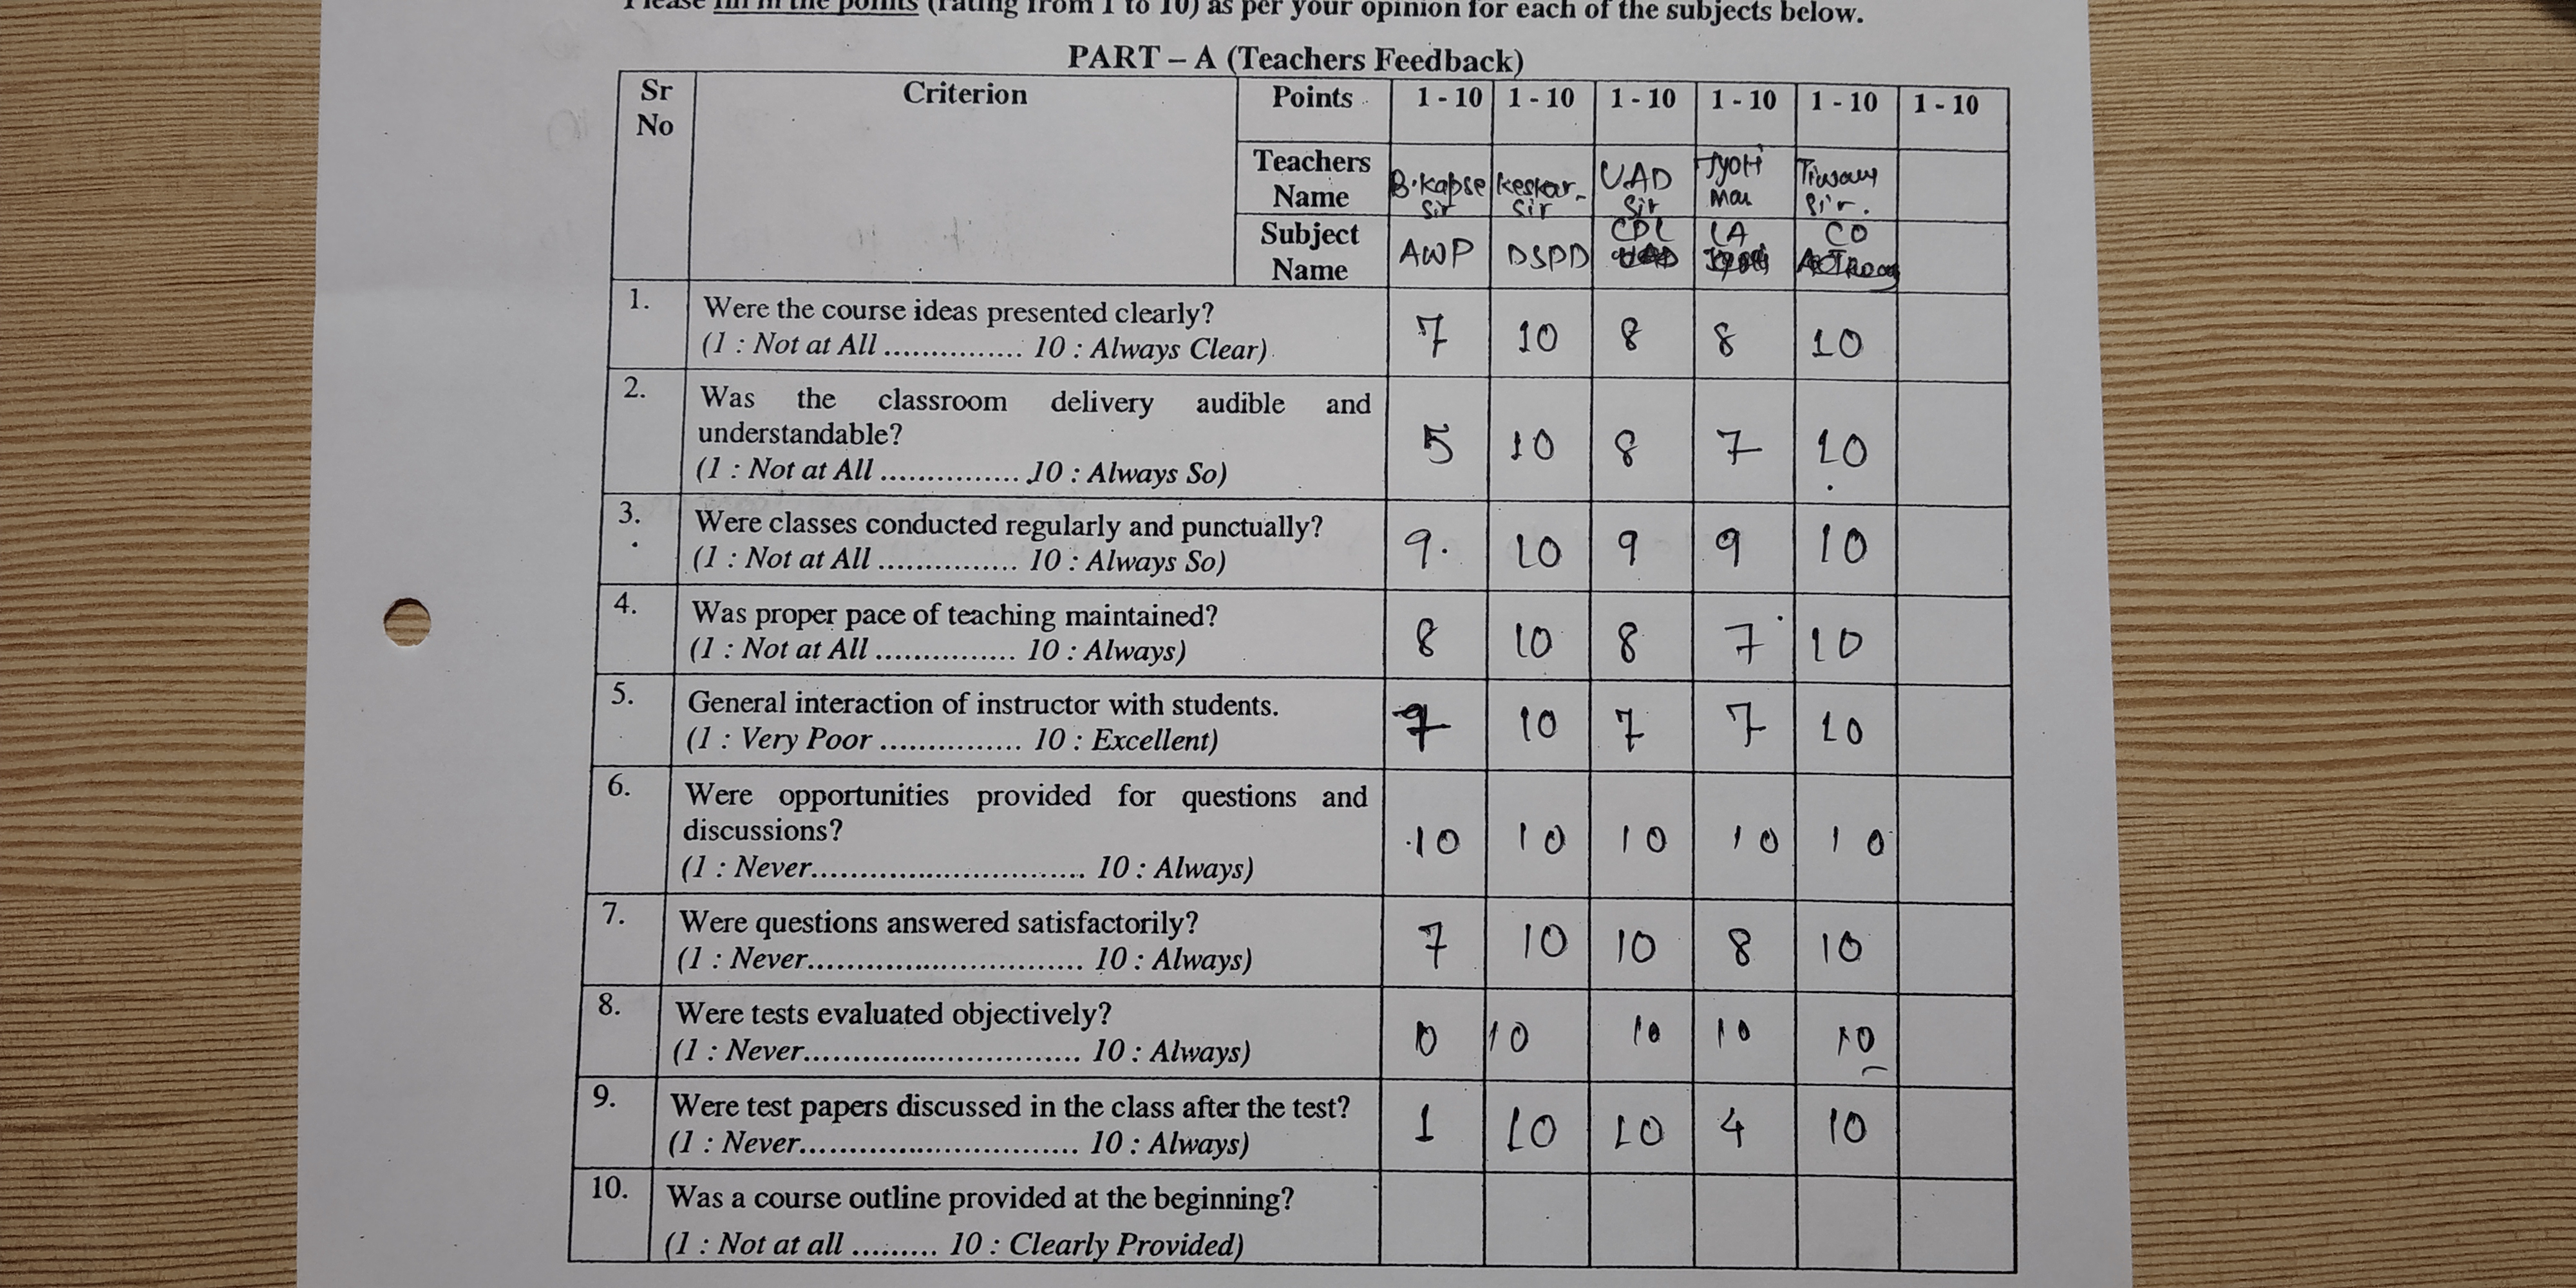 Please fill in the points (rating from 1 to 10) as per your opinion for each of the subjects below.
PART – A (Teachers Feedback)
Sr No Criterion Points 1 - 10 1 - 10 1 - 10 1 - 10 1 - 10 1 - 10
Teachers Name B.Kapse Sir Keskar Sir UAD Sir Jyoti Mam Tiwary Sir.
Subject Name AWP DSPD CDL LA CO
1. Were the course ideas presented clearly? 7 10 8 8 10
(1 : Not at All ............... 10 : Always Clear)
2. Was the classroom delivery audible and
understandable? 5 10 8 7 10
(1 : Not at All ............... 10 : Always So)
3. Were classes conducted regularly and punctually? 9 10 9 9 10
(1 : Not at All ............... 10 : Always So)
4. Was proper pace of teaching maintained? 8 10 8 7 10
(1 : Not at All ............... 10 : Always)
5. General interaction of instructor with students. 10 7 7 10
(1 : Very Poor ............... 10 : Excellent)
6. Were opportunities provided for questions and
discussions? 10 10 10 10 10
(1 : Never............................. 10 : Always)
7. Were questions answered satisfactorily? 7 10 10 8 10
(1 : Never............................. 10 : Always)
8. Were tests evaluated objectively? 10 10 10 10
(1 : Never............................. 10 : Always)
9. Were test papers discussed in the class after the test? 1 10 10 4 10
(1 : Never............................. 10 : Always)
10. Was a course outline provided at the beginning?
(1 : Not at all ......... 10 : Clearly Provided)